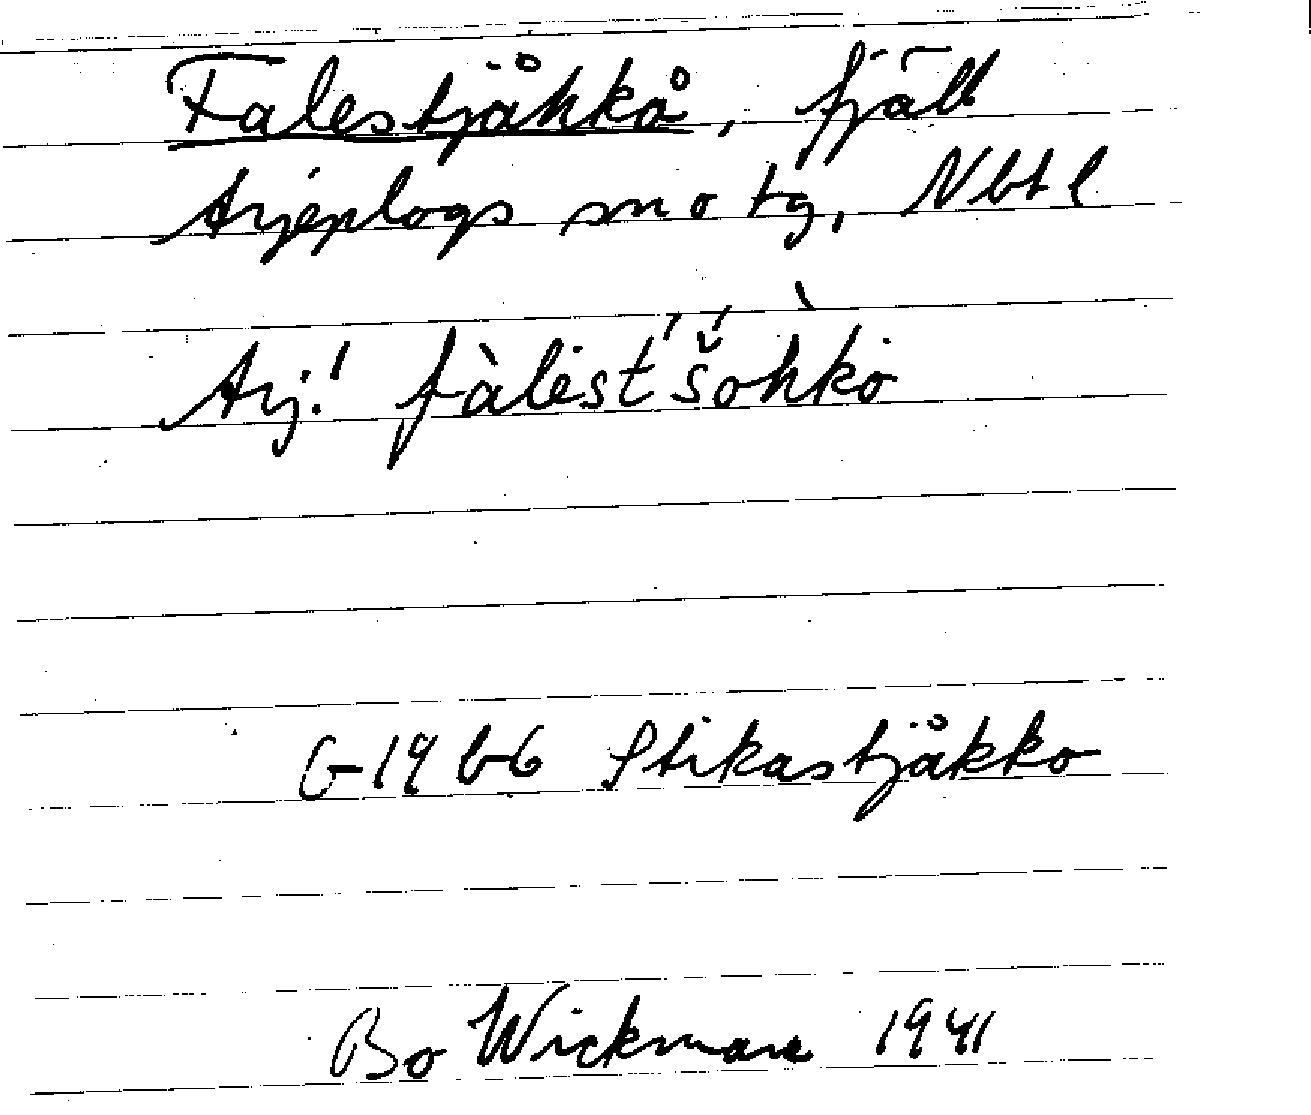 Falestjåhkå, fjäll
Arjeplogs sn o tg, Nbt l
Arj! fàlest'š́ohkò
G-19 b-6 Stikastjåkko
Bo Wickman 1941